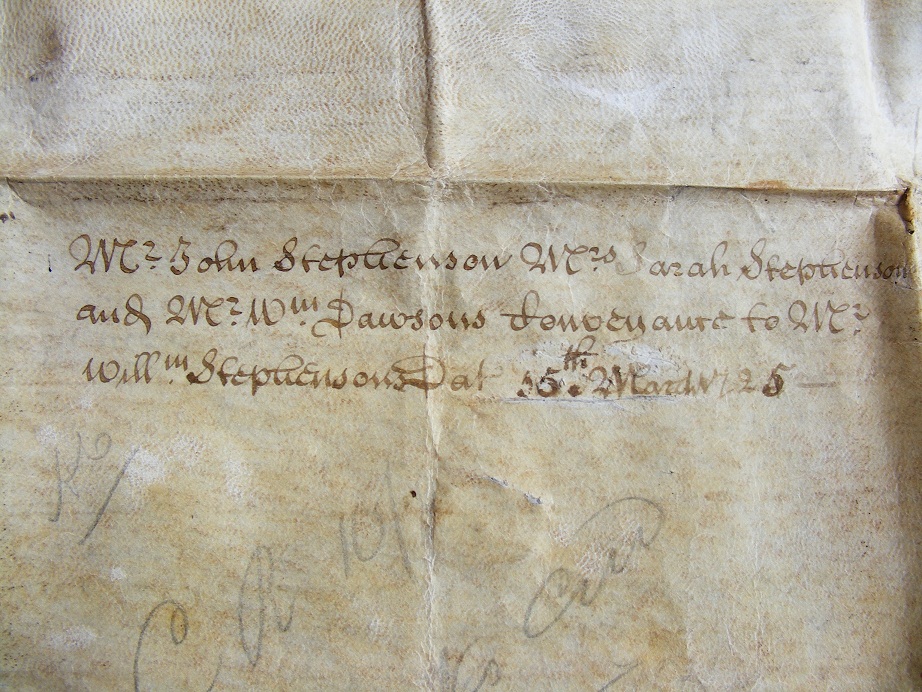 Mr. John Stephenson Mrs Sarah Stephenson
and Mr. Wm Dawsons Conveyance to Mr.
Willm. Stephensons Dat 15th. March 1725